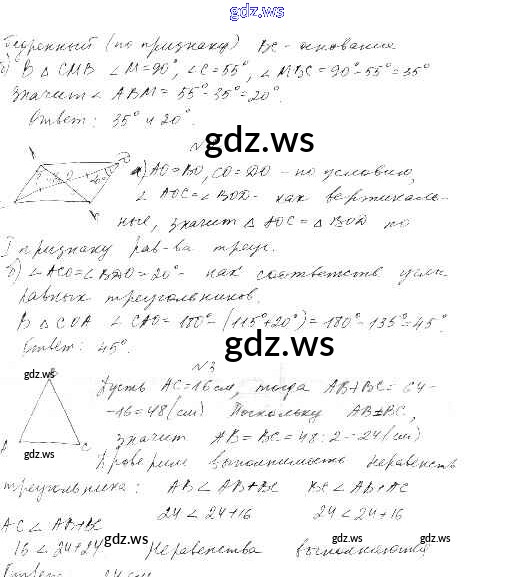 gdz.ws
бедренный (по признаку) BC - основание
б) В △ CMB ∠M=90°, ∠C=55°, ∠MBC=90°-55°=35°
Значит ∠ ABM = 55°-35°=20°.
Ответ: 35° и 20°.
gdz.ws
а) AO=BO, CO=DO - по условию,
∠ AOC=∠BOD - как вертикаль-
ные, значит △ AOC = △ BOD по
I признаку рав-ва треуг.
б) ∠ACO=∠BDO=20° - как соответств углы
равных треугольников.
В △ COA ∠CAO=180°-(115°+20°)=180°-135°=45°.
Ответ: 45°.
gdz.ws
№3
gdz.ws
Пусть AC=16см, тогда AB+BC=64-
-16=48(см) Поскольку AB=BC,
значит AB=BC=48:2=24(см)
A C
gdz.ws
Проверим выполнимость неравенств
треугольника: AB < AB+BC BC < AB+AC
24<24+16 24<24+16
AC< AB+BC
gdz.ws
gdz.ws
16<24+24. Неравенства выполняются
gdz.ws